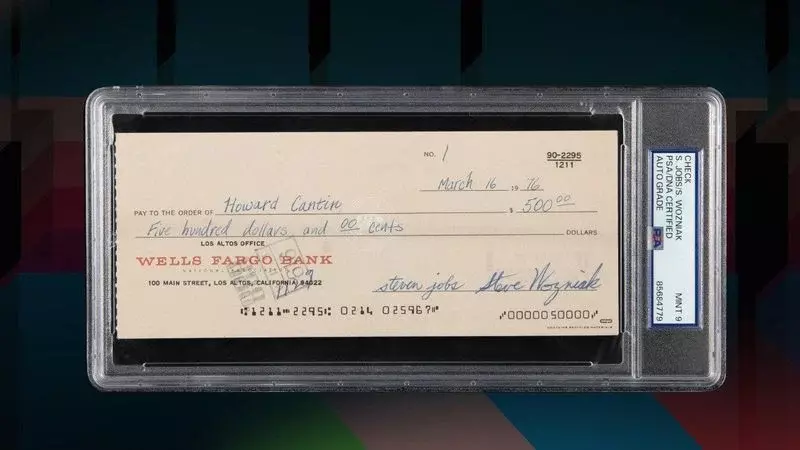 NO. 1
90-2295
1211
March 16 1976
PAY TO THE ORDER OF Howard Cantin $ 500 00
Five hundred dollars and 00 cents DOLLARS
LOS ALTOS OFFICE
WELLS FARGO BANK
NATIONAL ASSOCIATION
100 MAIN STREET, LOS ALTOS, CALIFORNIA 94022
steven jobs Steve Wozniak
⑆1211⑉2295⑆ 0214 025967⑈ ⑈0000050000⑈
CHECK
S. JOBS/S. WOZNIAK
PSA/DNA CERTIFIED
AUTO GRADE
PSA
MINT 9
85684779